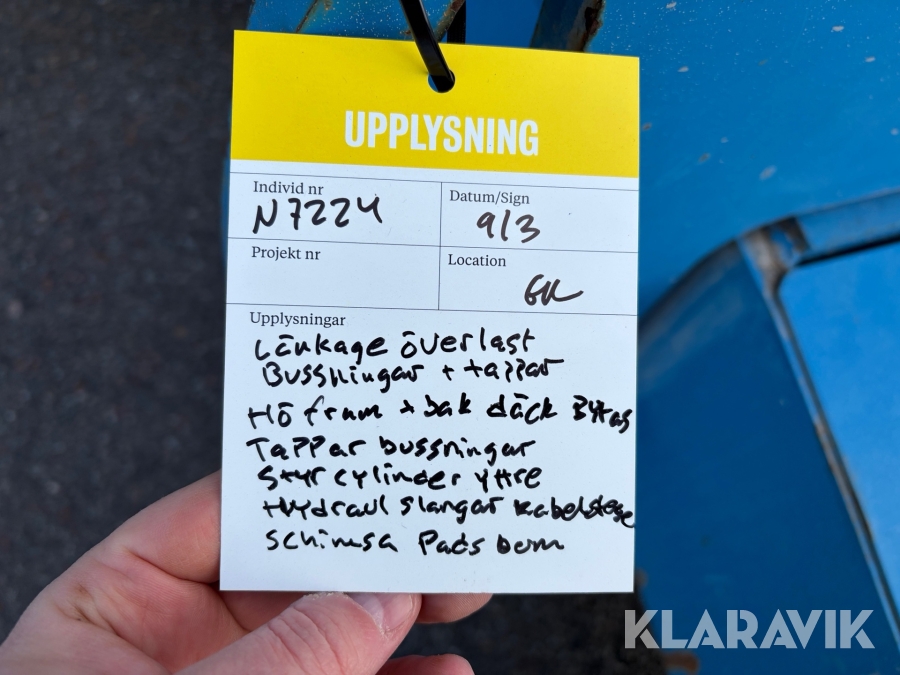 UPPLYSNING
Individ nr
N7224
Datum/Sign
9/3
Projekt nr
Location
GK
Upplysningar
Länkage överlast
Bussningar + tappar
Hö fram + bak däck Bytas
Tappar bussningar
Styrcylinder yttre
Hydraul slangar kabelstege
Schimsa Pads bom
KLARAVIK